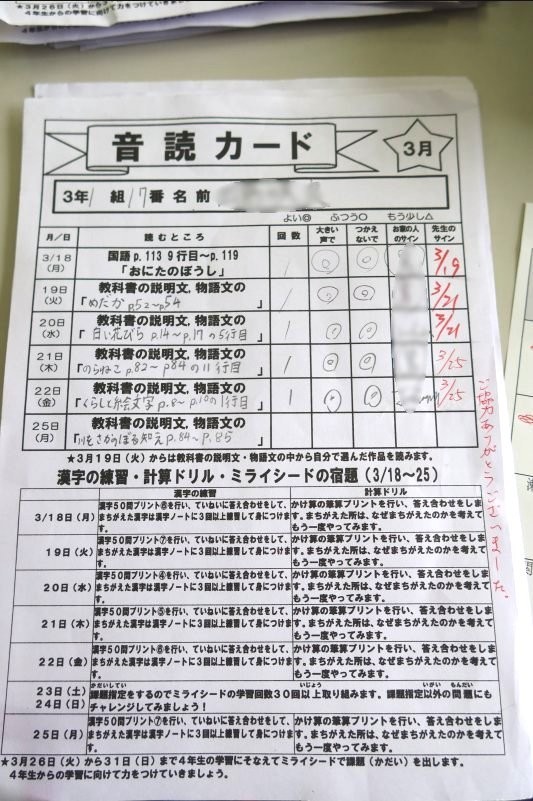 ★3月26日（火）から
4年生からの学習に向けて力をつけていきま
音読カード
3月
3年1組17番 名前
よい◎ ふつう〇 もう少し△
月／日 読むところ 回数 大きい声で つかえないで お家の人のサイン 先生のサイン
3/18（月） 国語p.113 9行目～p.119 「おにたのぼうし」 / ◎ ◎ 3/19
19日（火） 教科書の説明文，物語文の 「めだか p52～p54 」 / ◎ ◎ 3/21
20日（水） 教科書の説明文，物語文の 「白い花びら p.14～p.17の5行目 」 / ◎ ◎ 3/21
21日（木） 教科書の説明文，物語文の 「のらねこ p.82～p84の11行目 」 / ◎ ◎ 3/25
22日（金） 教科書の説明文，物語文の 「くらしと絵文字 p.8～p.10の1行目 」 / ◎ ◎ 3/25
25日（月） 教科書の説明文，物語文の 「川をさかのぼる知え p.84～p.85 」
★3月19日（火）からは教科書の説明文・物語文の中から自分で選んだ作品を読みます。
ご協力ありがとうございました。
漢字の練習・計算ドリル・ミライシードの宿題（3/18～25）
漢字の練習 計算ドリル
3/18日（月） 漢字50問プリント⑥を行い、ていねいに答え合わせをして、まちがえた漢字は漢字ノートに3回以上練習して身につけます。 かけ算の筆算プリントを行い、答え合わせをします。まちがえた所は、なぜまちがえたのかを考えてもう一度やってみます。
19日（火） 漢字50問プリント⑦を行い、ていねいに答え合わせをして、まちがえた漢字は漢字ノートに3回以上練習して身につけます。 かけ算の筆算プリントを行い、答え合わせをします。まちがえた所は、なぜまちがえたのかを考えてもう一度やってみます。
20日（水） 漢字50問プリント④を行い、ていねいに答え合わせをして、まちがえた漢字は漢字ノートに3回以上練習して身につけます。 かけ算の筆算プリントを行い、答え合わせをします。まちがえた所は、なぜまちがえたのかを考えてもう一度やってみます。
21日（木） 漢字50問プリント⑤を行い、ていねいに答え合わせをして、まちがえた漢字は漢字ノートに3回以上練習して身につけます。 かけ算の筆算プリントを行い、答え合わせをします。まちがえた所は、なぜまちがえたのかを考えてもう一度やってみます。
22日（金） 漢字50問プリント⑥を行い、ていねいに答え合わせをして、まちがえた漢字は漢字ノートに3回以上練習して身につけます。 かけ算の筆算プリントを行い、答え合わせをします。まちがえた所は、なぜまちがえたのかを考えてもう一度やってみます。
23日（土） 24日（日） 課題指定をするのでミライシードの学習回数30回以上取り組みます。課題指定以外の問題にもチャレンジしてみましょう！
25日（月） 漢字50問プリント⑦を行い、ていねいに答え合わせをして、まちがえた漢字は漢字ノートに3回以上練習して身につけます。 かけ算の筆算プリントを行い、答え合わせをします。まちがえた所は、なぜまちがえたのかを考えてもう一度やってみます。
★3月26日（火）から31日（日）まで4年生にそなえてミライシードで課題（かだい）を出します。
4年生からの学習に向けて力をつけていきましょう。